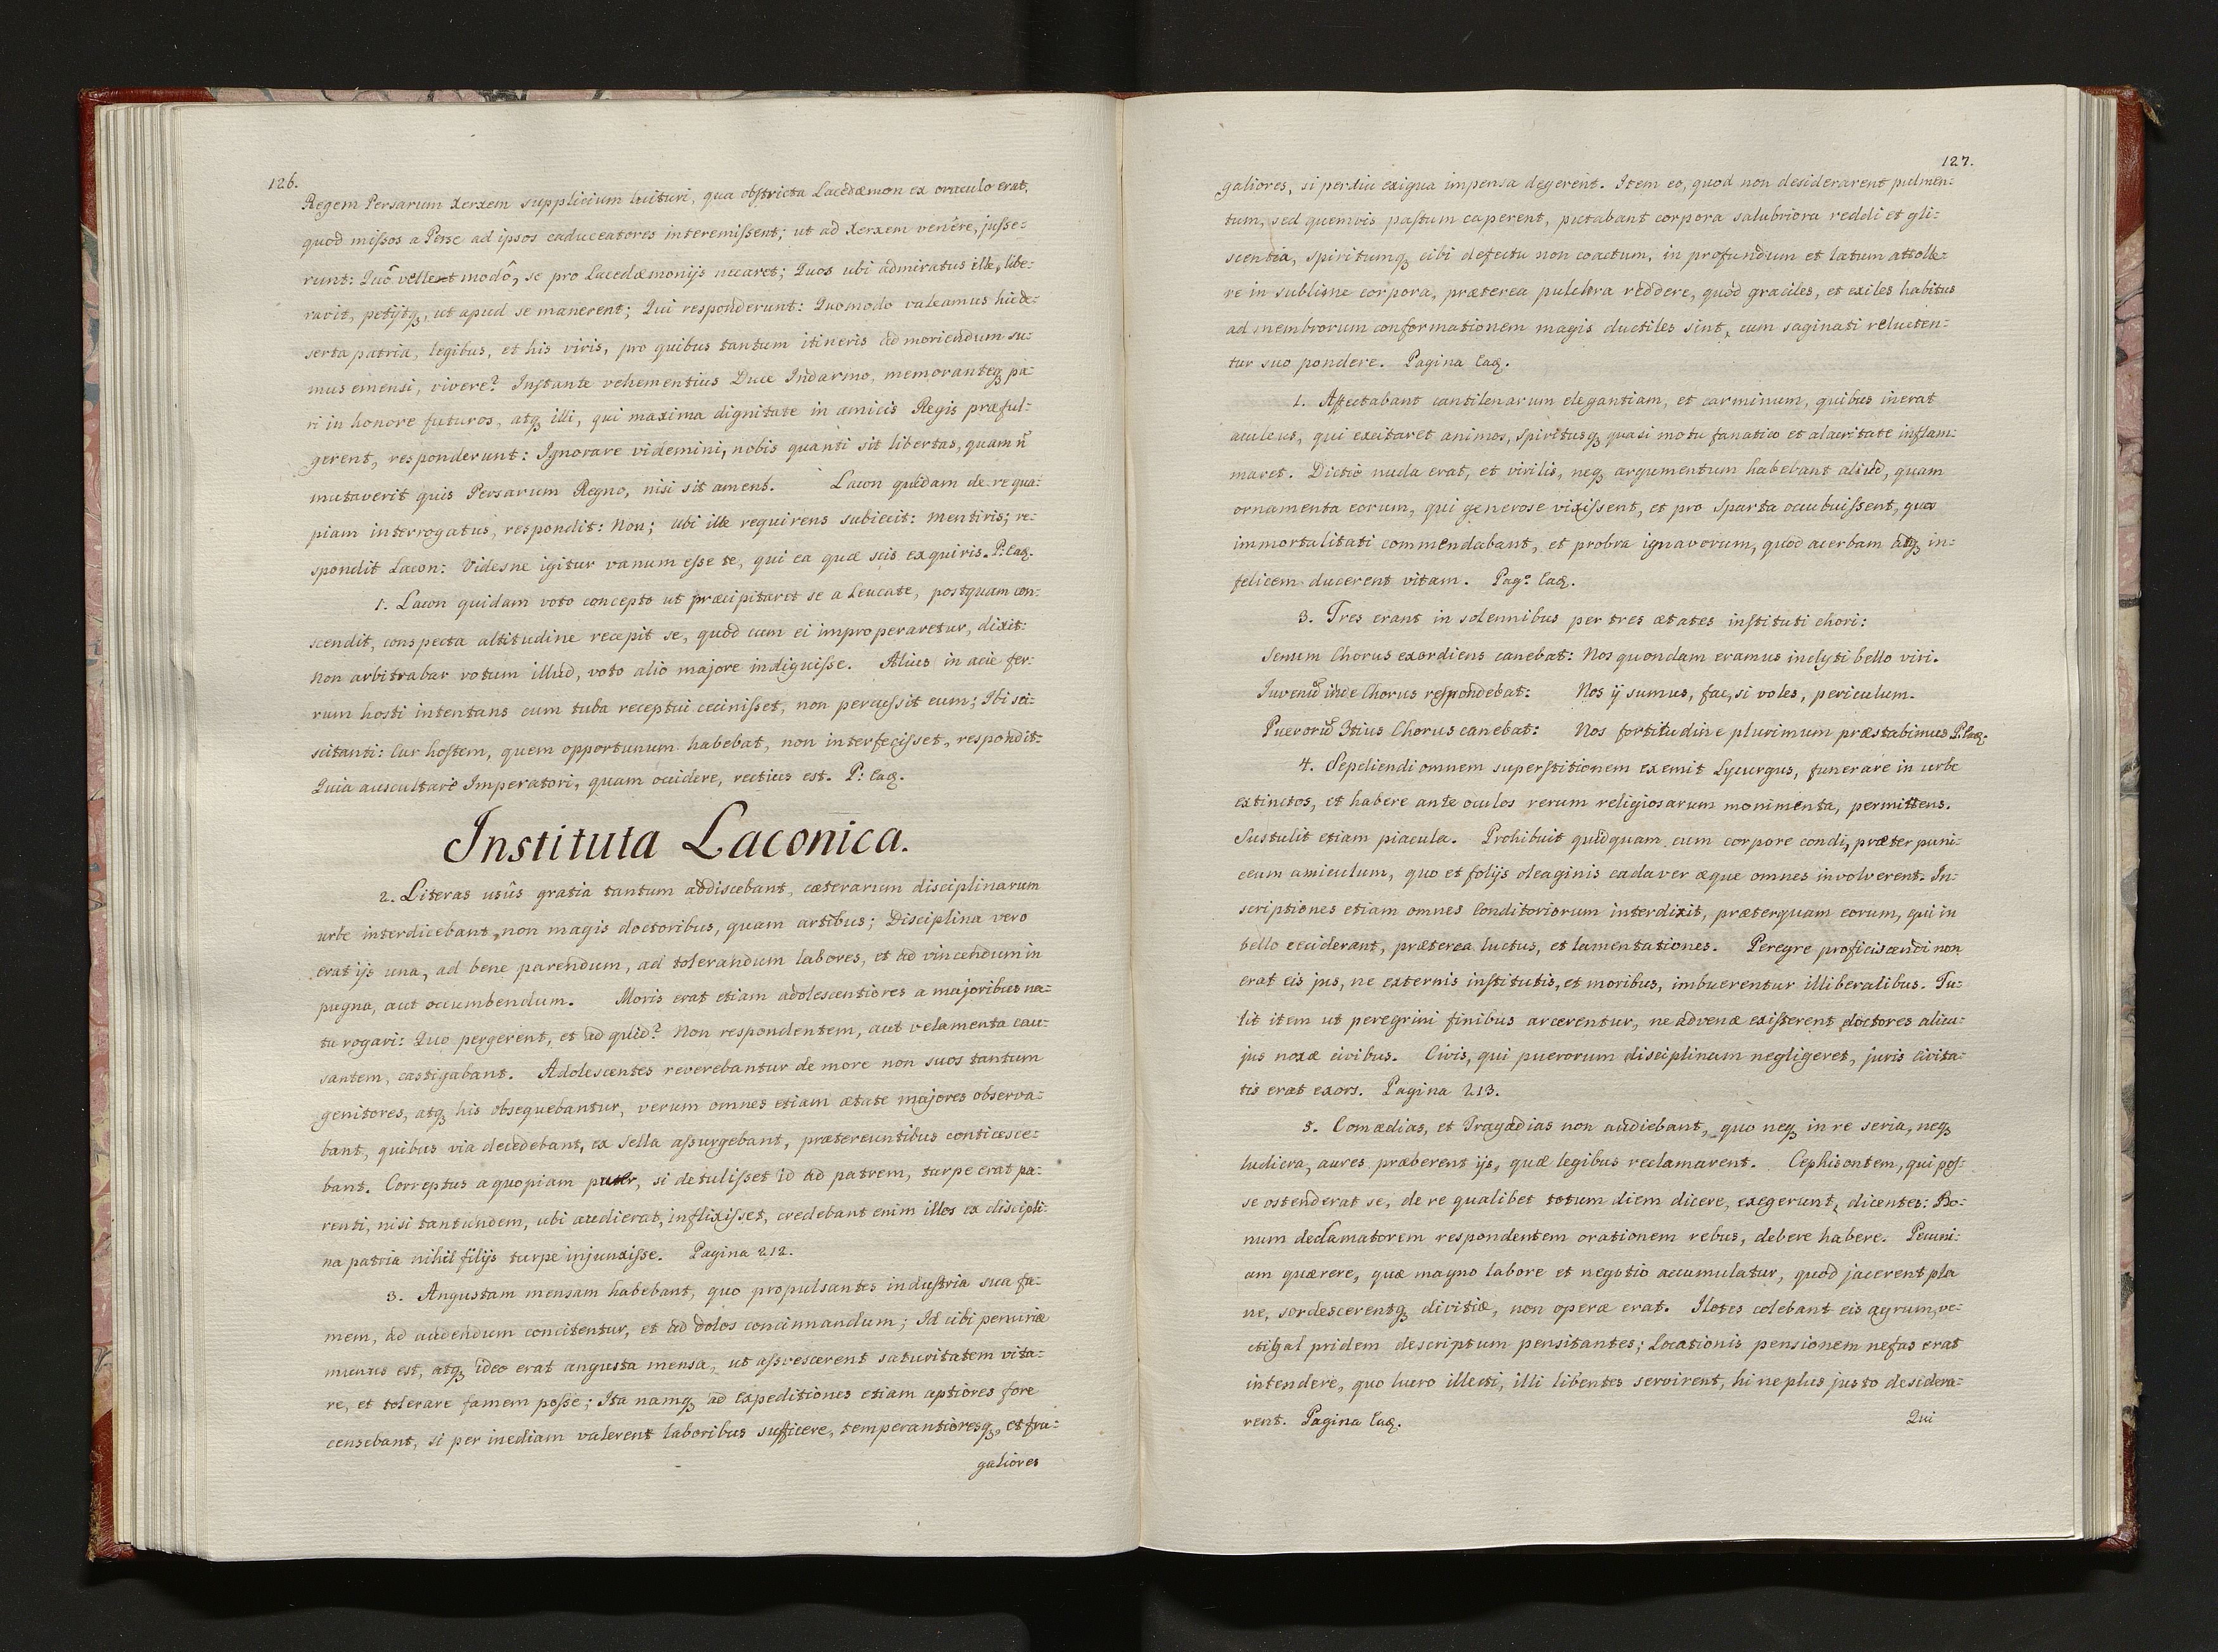 126.
Regem Persarum Xerxem supplicium luituri, qua obstricta Lacedæmon ex oraculo erat,
quod missos a Perse ad ipsos caduceatores interemissent; ut ad Xerxem venêre, jusse-
runt: Quô vellet modô, se pro Lacedæmonijs necaret; Quos ubi admiratus ille, libe-
ravit, petijtq, ut apud se manerent; Qui responderunt: Quomodo valeamus hic de-
serta patria, legibus, et his viris, pro quibus tantum itineris ad moriendum su-
mus emensi, vivere? Instante vehementius Duce Indarmo, memoranteq pa-
ri in honore futuros, atq illi, qui maxima dignitate in amicis Regis præful-
gerent, responderunt: Ignorare videmini, nobis quanti sit libertas, quam n̄
mutaverit quis Persarum Regno, nisi sit amens. Lacon quidam de re qua-
piam interrogatus, respondit: Non; ubi ille requirens subiecit: Mentiris; re-
spondit Lacon: Videsne igitur vanum esse te, qui ea quæ scis exquiris. P: Eaq.
1. Lacon quidam voto concepto ut præcipitaret se a Leucate, postquam con-
scendit, conspecta altitudine recepit se, quod cum ei improperaretur, dixit:
Non arbitrabar votum illud, voto alio majore indiguisse. Alius in acie fer-
rum hosti intentans cum tuba receptui cecinisset, non percussit eum; Ibi sci-
scitanti: Cur hostem, quem opportunum habebat, non interfecisset, respondit:
Quia auscultare Imperatori, quam occidere, rectius est. P: Eaq.
Instituta Laconica.
2. Literas usûs gratia tantum addiscebant, cæterarum disciplinarum
urbe interdicebant, non magis doctoribus, quam artibus; Disciplina vero
erat ijs una, ad bene parendum, ad tolerandum labores, et ad vincendum in
pugna, aut occumbendum. Moris erat etiam adolescentiores a majoribus na-
tu rogari: Quo pergerent, et ad quid? Non respondentem, aut velamenta cau-
santem, castigabant. Adolescentes reverebantur de more non suos tantum
genitores, atq his obsequebantur, verum omnes etiam ætate majores observa-
bant, quibus via decedebant, ex sella assurgebant, prætereuntibus conticesce-
bant. Correptus a quopiam puer, si detulisset id ad patrem, turpe erat pa-
renti, nisi tantundem, ubi audierat, inflixisset, credebant enim illos ex discipli-
na patria nihil filijs turpe injunxisse. Pagina 212.
3. Angustam mensam habebant, quo propulsantes industria sua fa-
mem, ad audendum concitentur, et ad dolos concinnandum; Id cibi penuriæ
munus est, atq ideo erat angusta mensa, ut assvescerent saturitatem vita-
re, et tolerare famem posse; Ita namq ad expeditiones etiam aptiores fore
censebant, si per inediam valerent laboribus sufficere, temperantioresq, et fru-
galiores
127.
galiores, si perdiu exigua impensa degerent. Item eo, quod non desiderarent pulmen-
tum, sed quemvis pastum caperent, putabant corpora salubriora reddi et gli-
scentia, spiritumq cibi defectu non coactum, in profundum et latum attolle-
re in sublime corpora, præterea pulchra reddere, quod graciles, et exiles habitus
ad membrorum conformationem magis ductiles sint, cum saginati relucten-
tur suo pondere. Pagina Eaq.
1. Affectabant cantilenarum elegantiam, et carminum, quibus inerat
aculeus, qui excitaret animos, spiritusq quasi motu fanatico et alacritate inflam-
maret. Dictio nuda erat, et virilis, neq argumentum habebant aliud, quam
ornamenta eorum, qui generose vixissent, et pro Sparta occubuissent, quos
immortalitati commendabant, et probra ignavorum, quod acerbam atq in-
felicem ducerent vitam. Pag: Eaq.
3. Tres erant in solennibus per tres ætates instituti chori:
Senum Chorus exordiens canebat: Nos quondam eramus inclyti bello viri.
Iuvenū inde Chorus respondebat: Nos ij sumus, fac, si voles, periculum.
Puerorū 3tius Chorus canebat: Nos fortitudine plurimum præstabimus P. Eaq.
4. Sepeliendi omnem superstitionem exemit Lycurgus, funerare in urbe
extinctos, et habere ante oculos rerum religiosarum monimenta, permittens.
Sustulit etiam piacula. Prohibuit quidquam cum corpore condi, præter puni-
ceum amiculum, quo et folijs oleaginis cadaver æque omnes involverent. In-
scriptiones etiam omnes Conditoriorum interdixit, præterquam eorum, qui in
bello ceciderant, præterea luctus, et lamentationes. Peregre proficiscendi non
erat eis jus, ne externis institutis, et moribus, imbuerentur illiberalibus. Tu-
lit item ut peregrini finibus arcerentur, ne advenæ existerent doctores alicu-
jus noxæ civibus. Civis, qui puerorum disciplinam negligeret, juris civita-
tis erat exors. Pagina 213.
5. Comædias, et Tragædias non audiebant, quo neq in re seria, neq
ludicra, aures præberent ijs, quæ legibus reclamarent. Cephisontem, qui pos-
se ostenderat se, de re qualibet totum diem dicere, exegerunt, dicentes: Bo-
num declamatorem respondentem orationem rebus, debere habere. Pecuni-
am quærere, quæ magno labore et negotio accumulatur, quod jacerent pla
ne, sordescerentq divitiæ, non operæ erat. Ilotes colebant eis agrum, ve-
ctigal pridem descriptum pensitantes; Locationis pensionem nefas erat
intendere, quo lucro illecti, illi libentes servirent, hi ne plus justo desidera-
rent. Pagina Eaq.
Qui